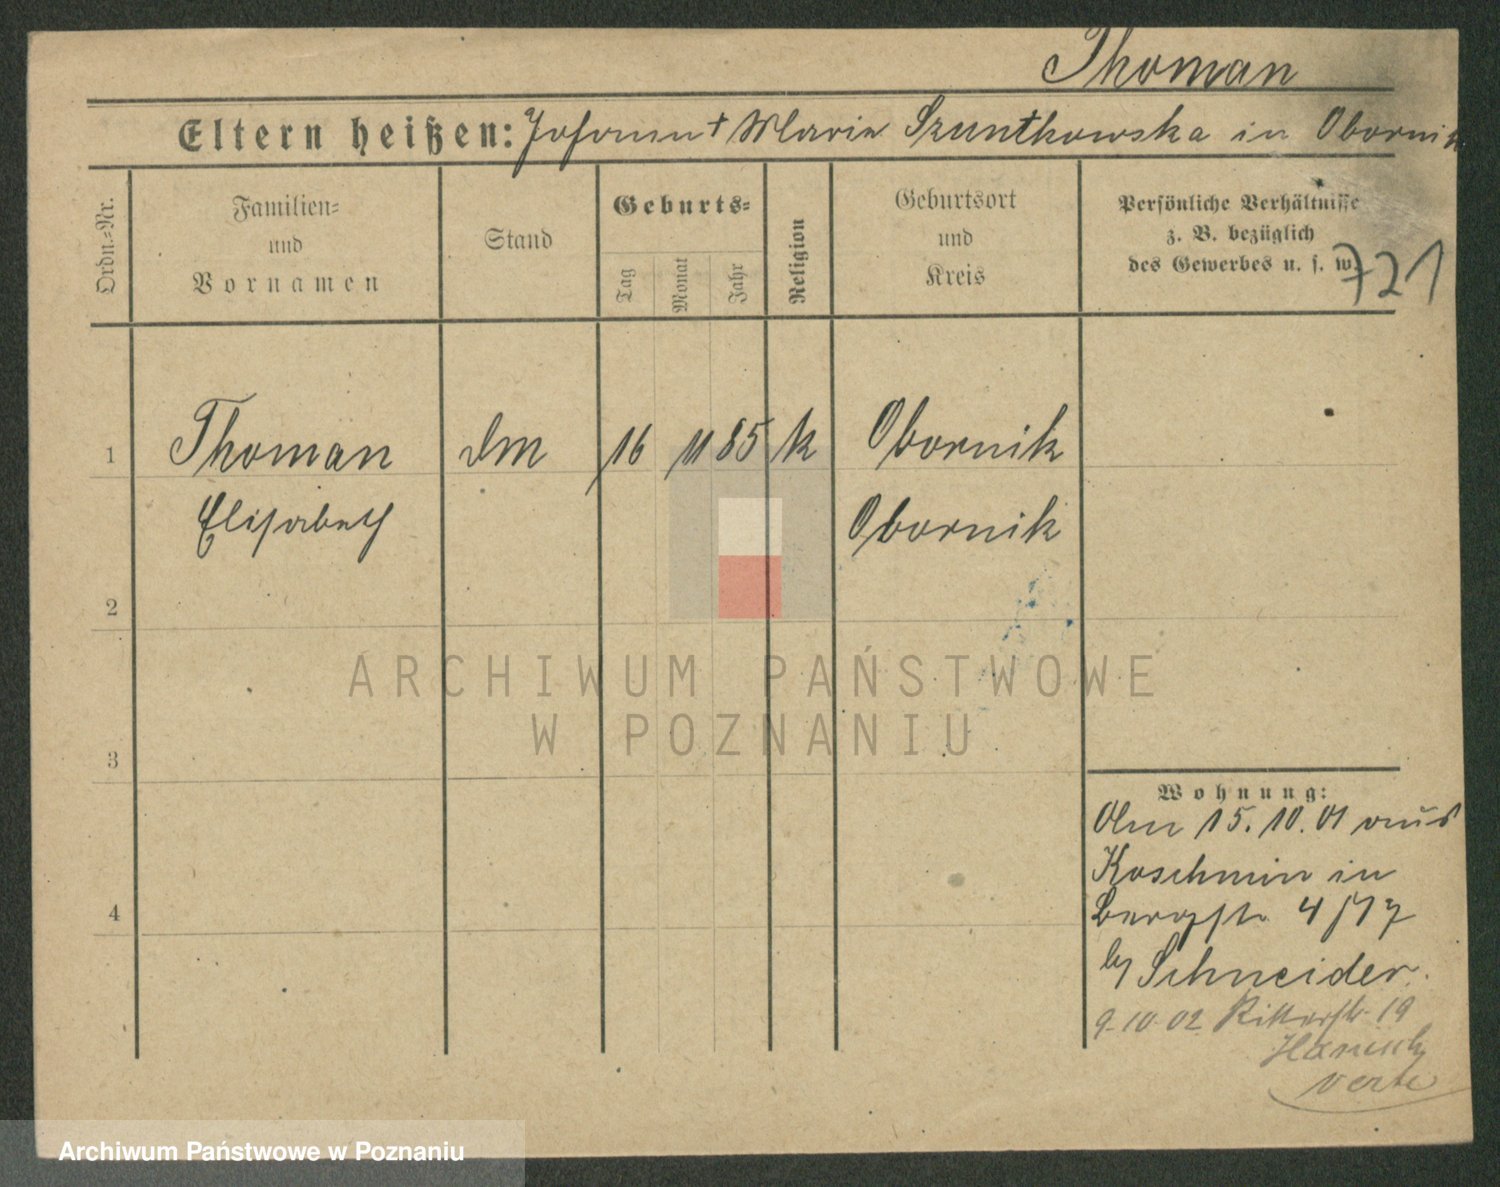 Thoman
Eltern heißen: Johann + Marie Szuntkowska in Obornik
Ordn.-Nr.
Familien- und Vornamen
Stand
Geburts-
Tag
Monat
Jahr
Religion
Geburtsort und Kreis
Persönliche Verhältnisse
z. B. bezüglich
des Gewerbes u. s. w.
721
1 Thoman 16 11 85 k Obornik
Elisabeth Obornik
2
3
4
Wohnung:
15. 10. 01 aus
Koschmin in
Bergstr 4
by Schneider.
9-10-02 Ritterstr. 19
verte
ARCHIWUM PAŃSTWOWE
W POZNANIU
Archiwum Państwowe w Poznaniu